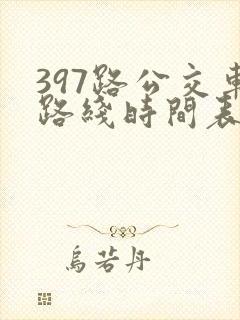 397路公交車
路綫時間表
烏若丹